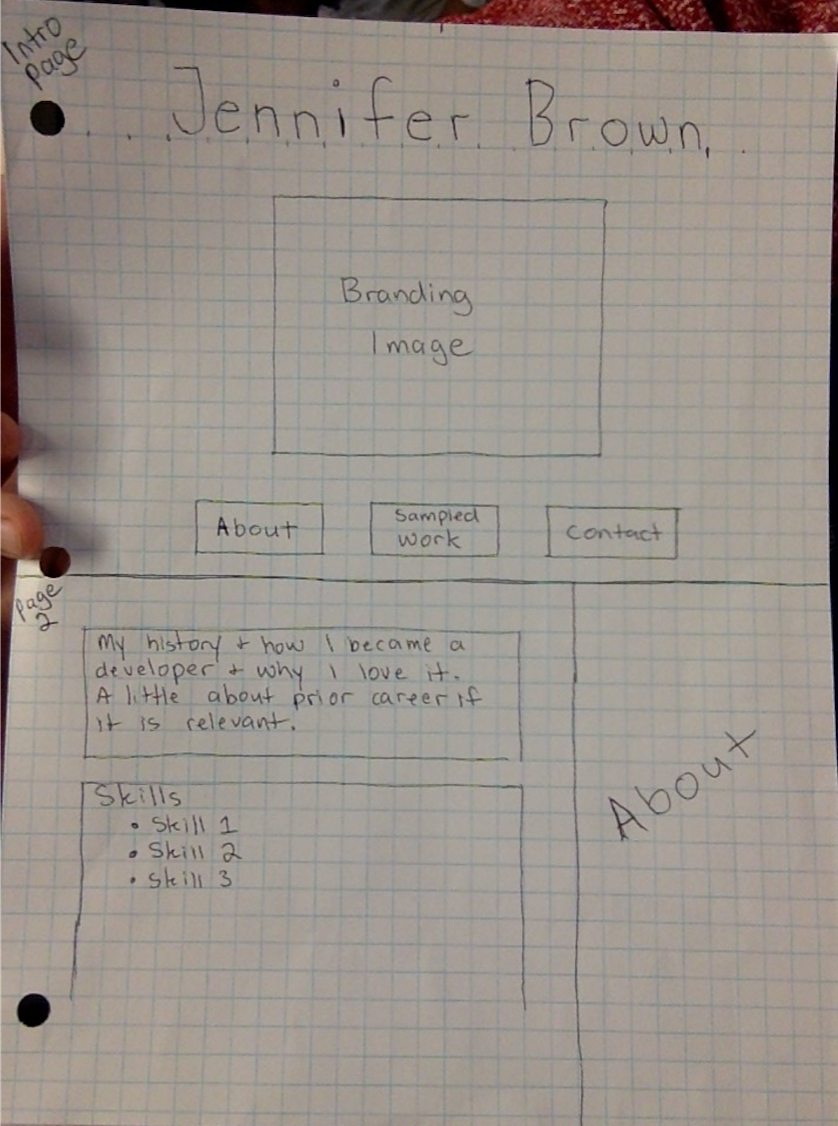 Intro
page
Jennifer Brown
Branding
Image
About
Sampled
Work
Contact
Page
2
My history + how I became a
developer + why I love it.
A little about prior career if
it is relevant.
Skills
• Skill 1
• Skill 2
• Skill 3
About